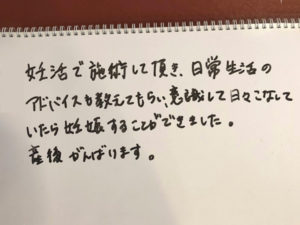 妊活で施術して頂き、日常生活の
アドバイスも教えてもらい、意識して日々こなして
いたら妊娠することができました。
産後がんばります。